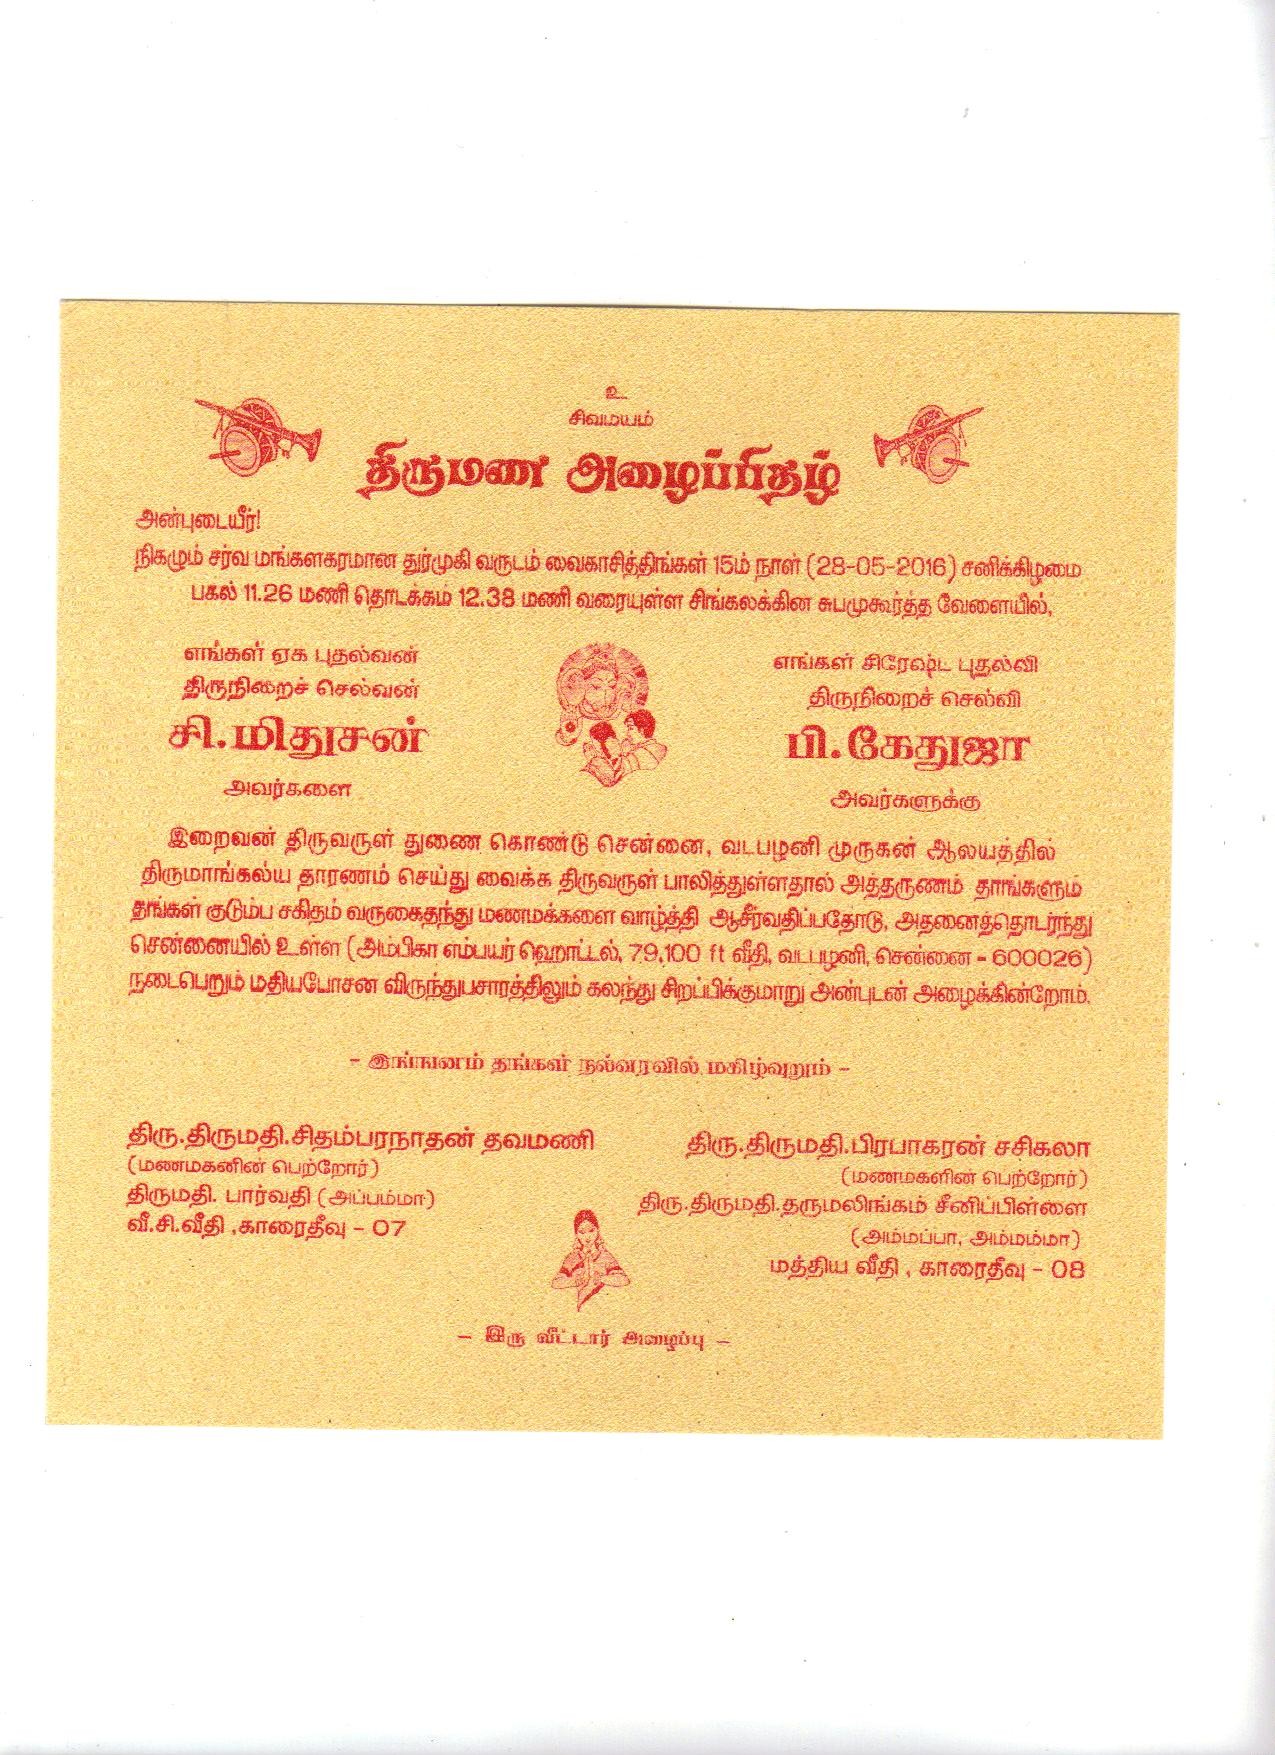 உ
சிவமயம்
திருமண அழைப்பிதழ்
அன்புடையீர்!
நிகழும் சர்வ மங்களகரமான துர்முகி வருடம் வைகாசித்திங்கள் 15ம் நாள் (28-05-2016) சனிக்கிழமை
பகல் 11.26 மணி தொடக்கம் 12.38 மணி வரையுள்ள சிங்கலக்கின சுபமுகூர்த்த வேளையில்,
எங்கள் ஏக புதல்வன்
திருநிறைச் செல்வன்
சி.மிதுசன்
அவர்களை
எங்கள் சிரேஷ்ட புதல்வி
திருநிறைச் செல்வி
பி.கேதுஜா
அவர்களுக்கு
இறைவன் திருவருள் துணை கொண்டு சென்னை, வடபழனி முருகன் ஆலயத்தில்
திருமாங்கல்ய தாரணம் செய்து வைக்க திருவருள் பாலித்துள்ளதால் அத்தருணம் தாங்களும்
தங்கள் குடும்ப சகிதம் வருகைதந்து மணமக்களை வாழ்த்தி ஆசீர்வதிப்பதோடு, அதனைத்தொடர்ந்து
சென்னையில் உள்ள (அம்பிகா எம்பயர் ஹொட்டல், 79,100 ft வீதி, வடபழனி, சென்னை - 600026)
நடைபெறும் மதியபோசன விருந்துபசாரத்திலும் கலந்து சிறப்பிக்குமாறு அன்புடன் அழைக்கின்றோம்.
- இங்ஙனம் தங்கள் நல்வரவில் மகிழ்வுறும் -
திரு.திருமதி.சிதம்பரநாதன் தவமணி
(மணமகனின் பெற்றோர்)
திருமதி. பார்வதி (அப்பம்மா)
வீ.சி.வீதி ,காரைதீவு - 07
திரு.திருமதி.பிரபாகரன் சசிகலா
(மணமகளின் பெற்றோர்)
திரு.திருமதி.தருமலிங்கம் சீனிப்பிள்ளை
(அம்மப்பா, அம்மம்மா)
மத்திய வீதி , காரைதீவு - 08
- இரு வீட்டார் அழைப்பு -